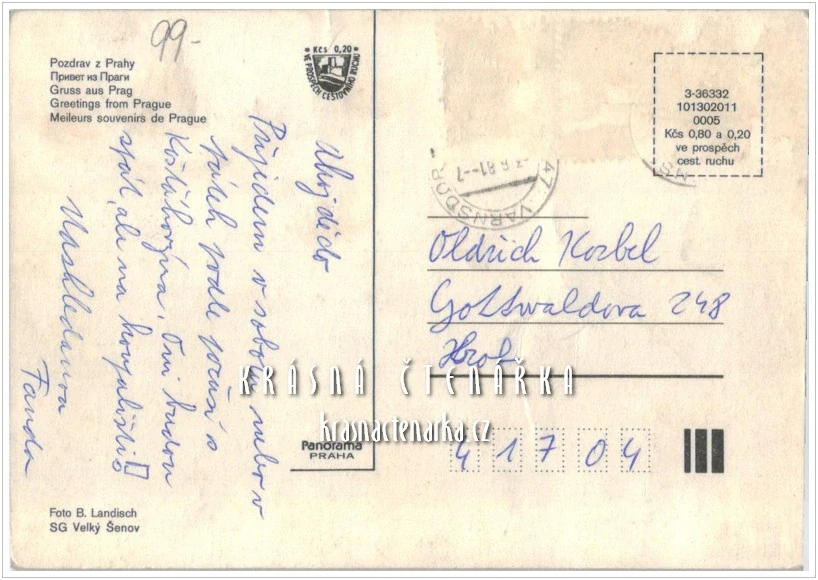 99-
Pozdrav z Prahy
Привет из Праги
Gruss aus Prag
Greetings from Prague
Meileurs souvenirs de Prague
Kčs 0,20
VE PROSPĚCH CESTOVNÍHO RUCHU
Ahoj dědo
Přijedem v sobotu nebo v
pátek podle počasí s
Košťálovýma. Oni budou
spát ale na
Nashledanou
Fanda
Foto B. Landisch
SG Velký Šenov
Panorama
PRAHA
3-36332
101302011
0005
Kčs 0,80 a 0,20
ve prospěch
cest. ruchu
47 VARNSDORF
.6.81--7
Oldřich Korbel
Gottwaldova 248
Hrob
41704
KRÁSNÁ ČTENÁŘKA
krasnactenarka.cz